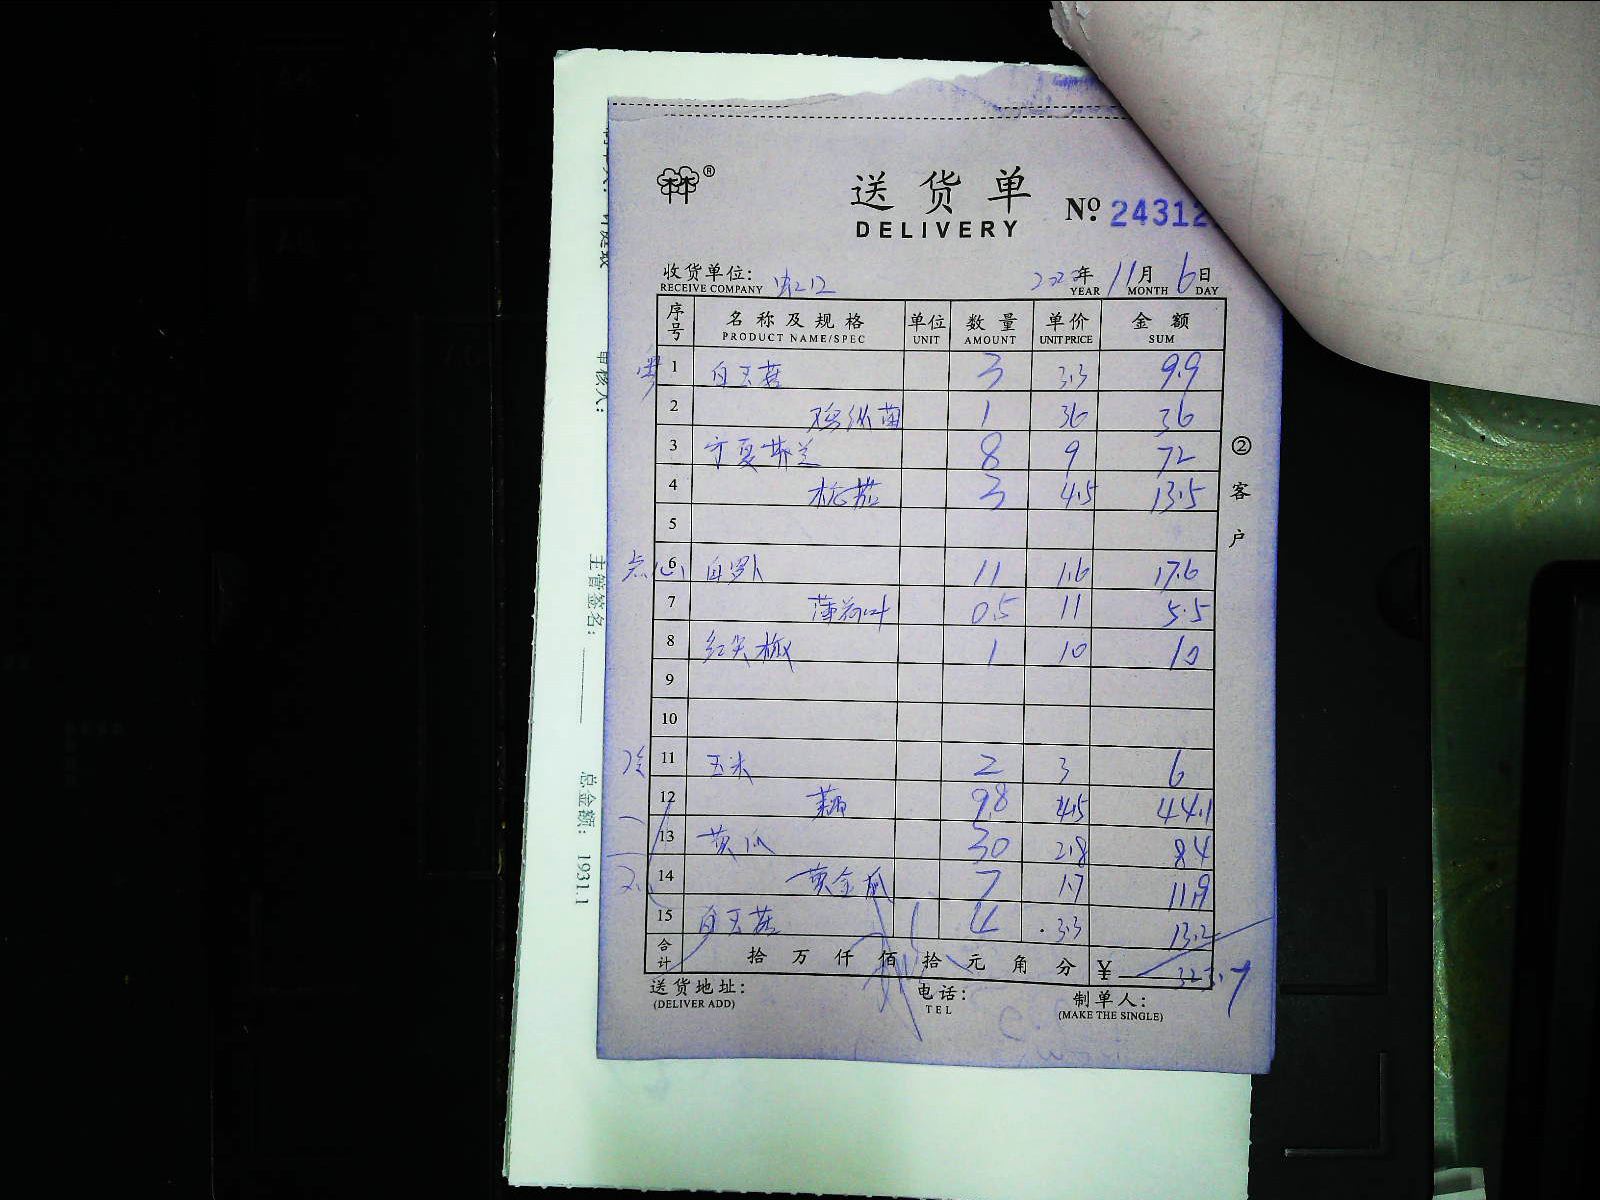 送货单
DELIVERY
Nº 24312
收货单位:
RECEIVE COMPANY
2020年 11月 6日
YEAR MONTH DAY
序号 名称及规格 单位 数量 单价 金额
PRODUCT NAME/SPEC UNIT AMOUNT UNIT PRICE SUM
1 白玉菇 3 3.3 9.9
2 鸡纵菌 1 36 36
3 宁夏芥兰 8 9 72
4 杭茄 3 4.5 13.5
5
点心 6 白罗卜 11 1.6 17.6
7 薄荷叶 0.5 11 5.5
8 红尖椒 1 10 10
9
10
11 玉米 2 3 6
12 藕 9.8 4.5 44.1
13 黄瓜 30 2.8 84
14 黄金瓜 7 1.7 11.9
15 白玉菇 4 3.3 13.2
合计 拾万仟佰拾元角分 ¥ 323.7
送货地址:
(DELIVER ADD)
电话:
TEL
制单人:
(MAKE THE SINGLE)
②客户
审核人:
主管签名:
总金额: 1931.1